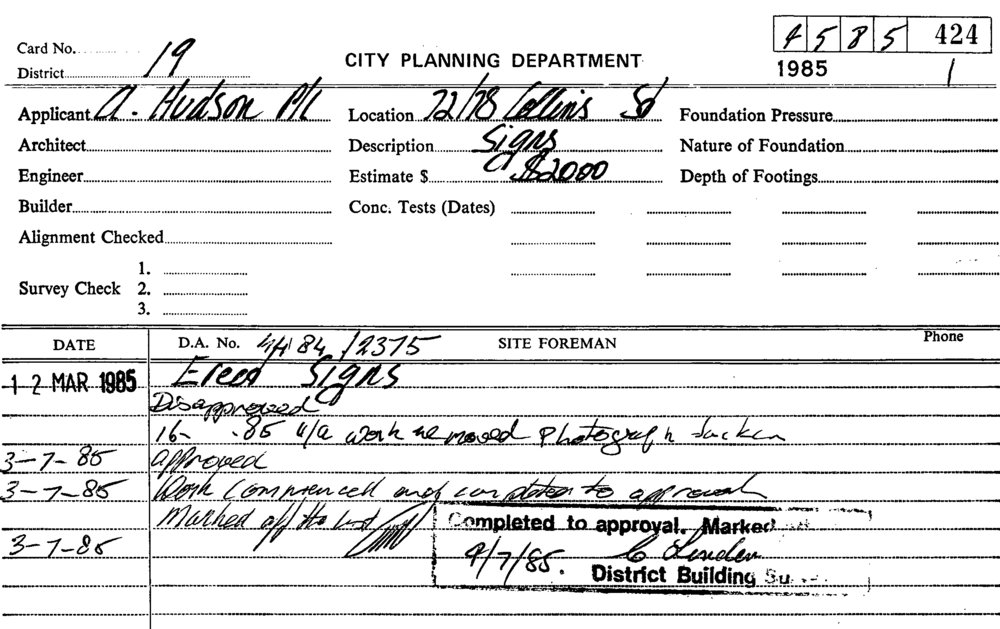 4 5 8 5 424
Card No.
19
CITY PLANNING DEPARTMENT
1985
1
District
Applicant A. Hudson P/L
Location 72/78 Collins Sd
Foundation Pressure
Architect
Description Signs
Nature of Foundation
Engineer
Estimate $ $2000
Depth of Footings
Builder
Conc. Tests (Dates)
Alignment Checked
Survey Check
1.
2.
3.
DATE
D.A. No. 44 84 /2375
SITE FOREMAN
Phone
12 MAR 1985
Erect Signs
Disapproved
16- .85 u/a work removed Photograph
3-7-85 approved
3-7-85 Work commenced and completed to approval
Marked off
3-7-85
Completed to approval. Marked
4/7/85.
District Building